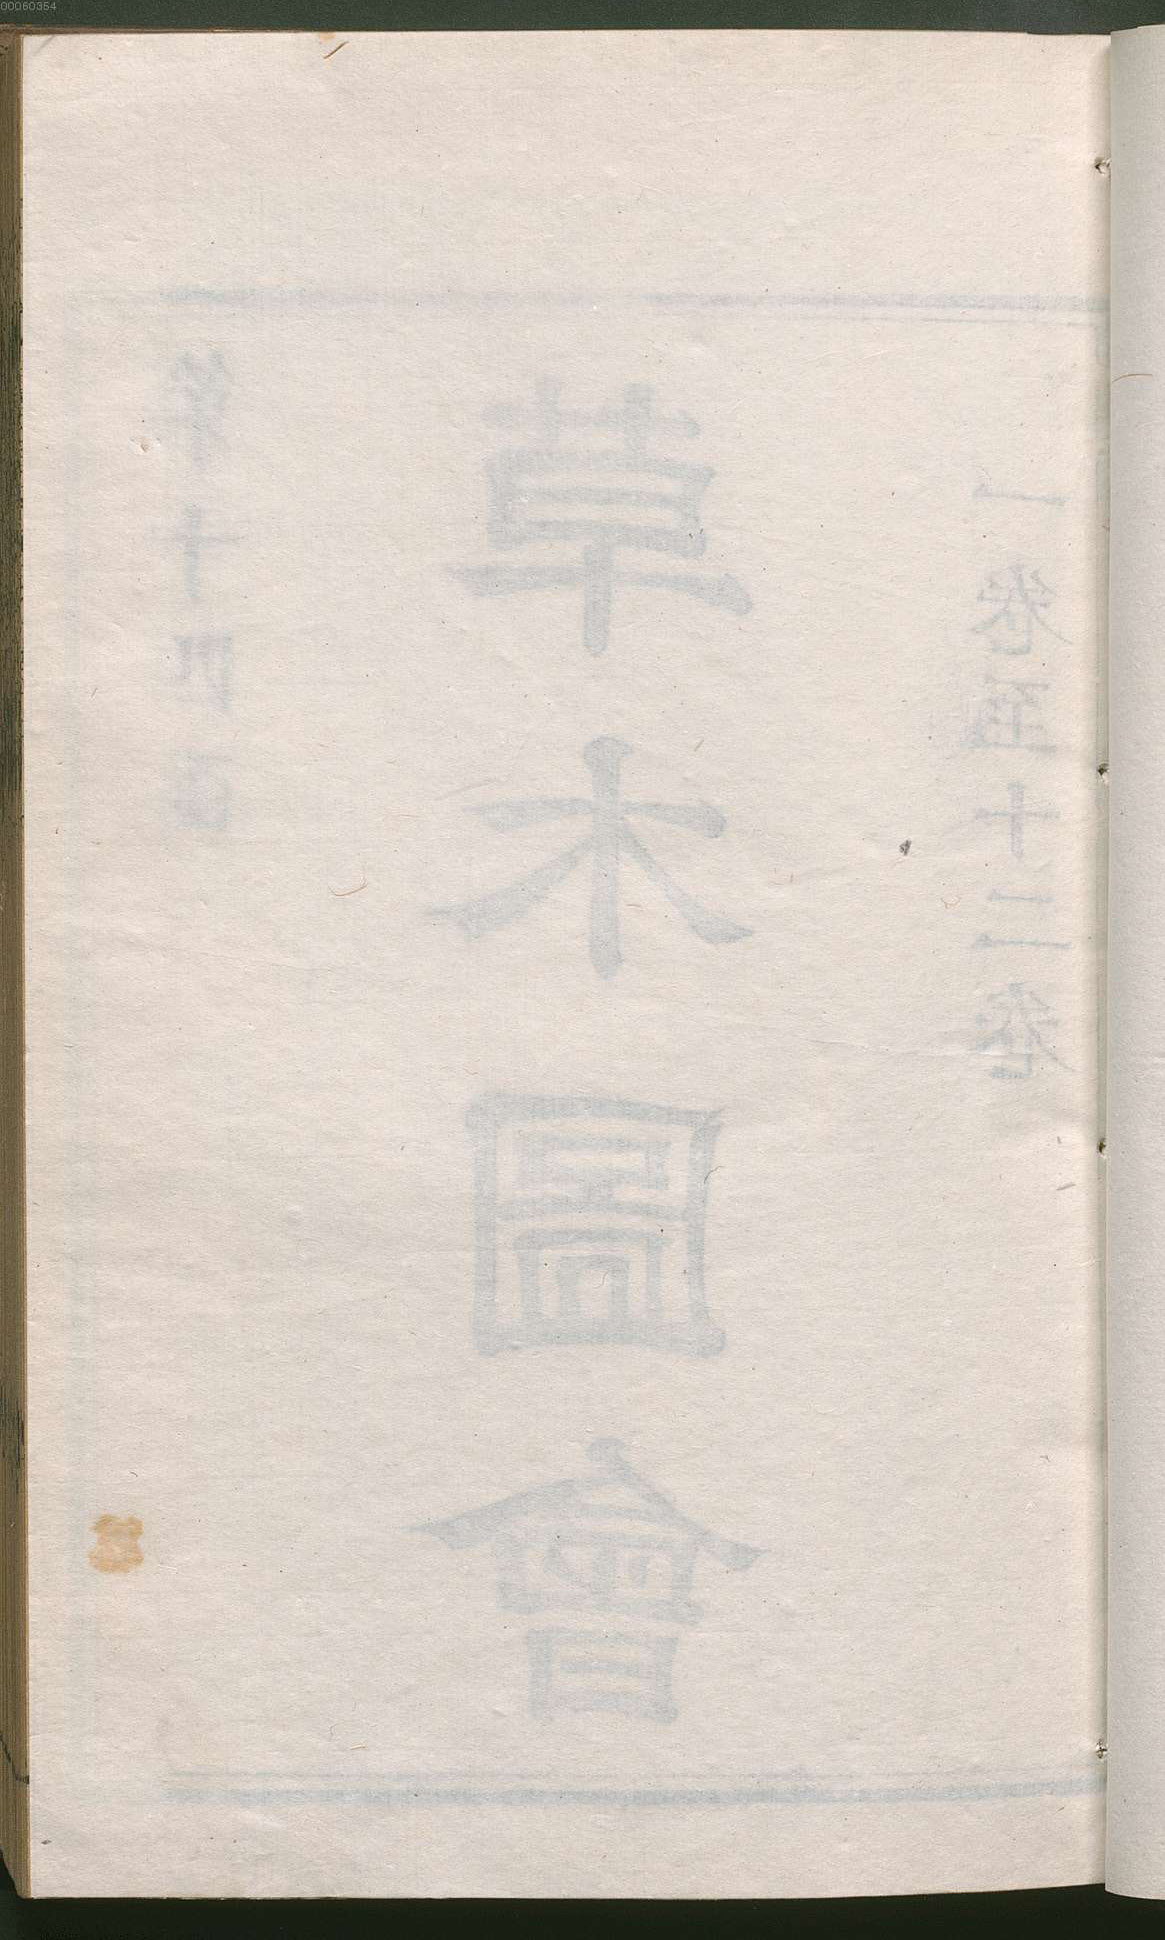 00060354
一卷至十二卷
草木圖會
第十四函